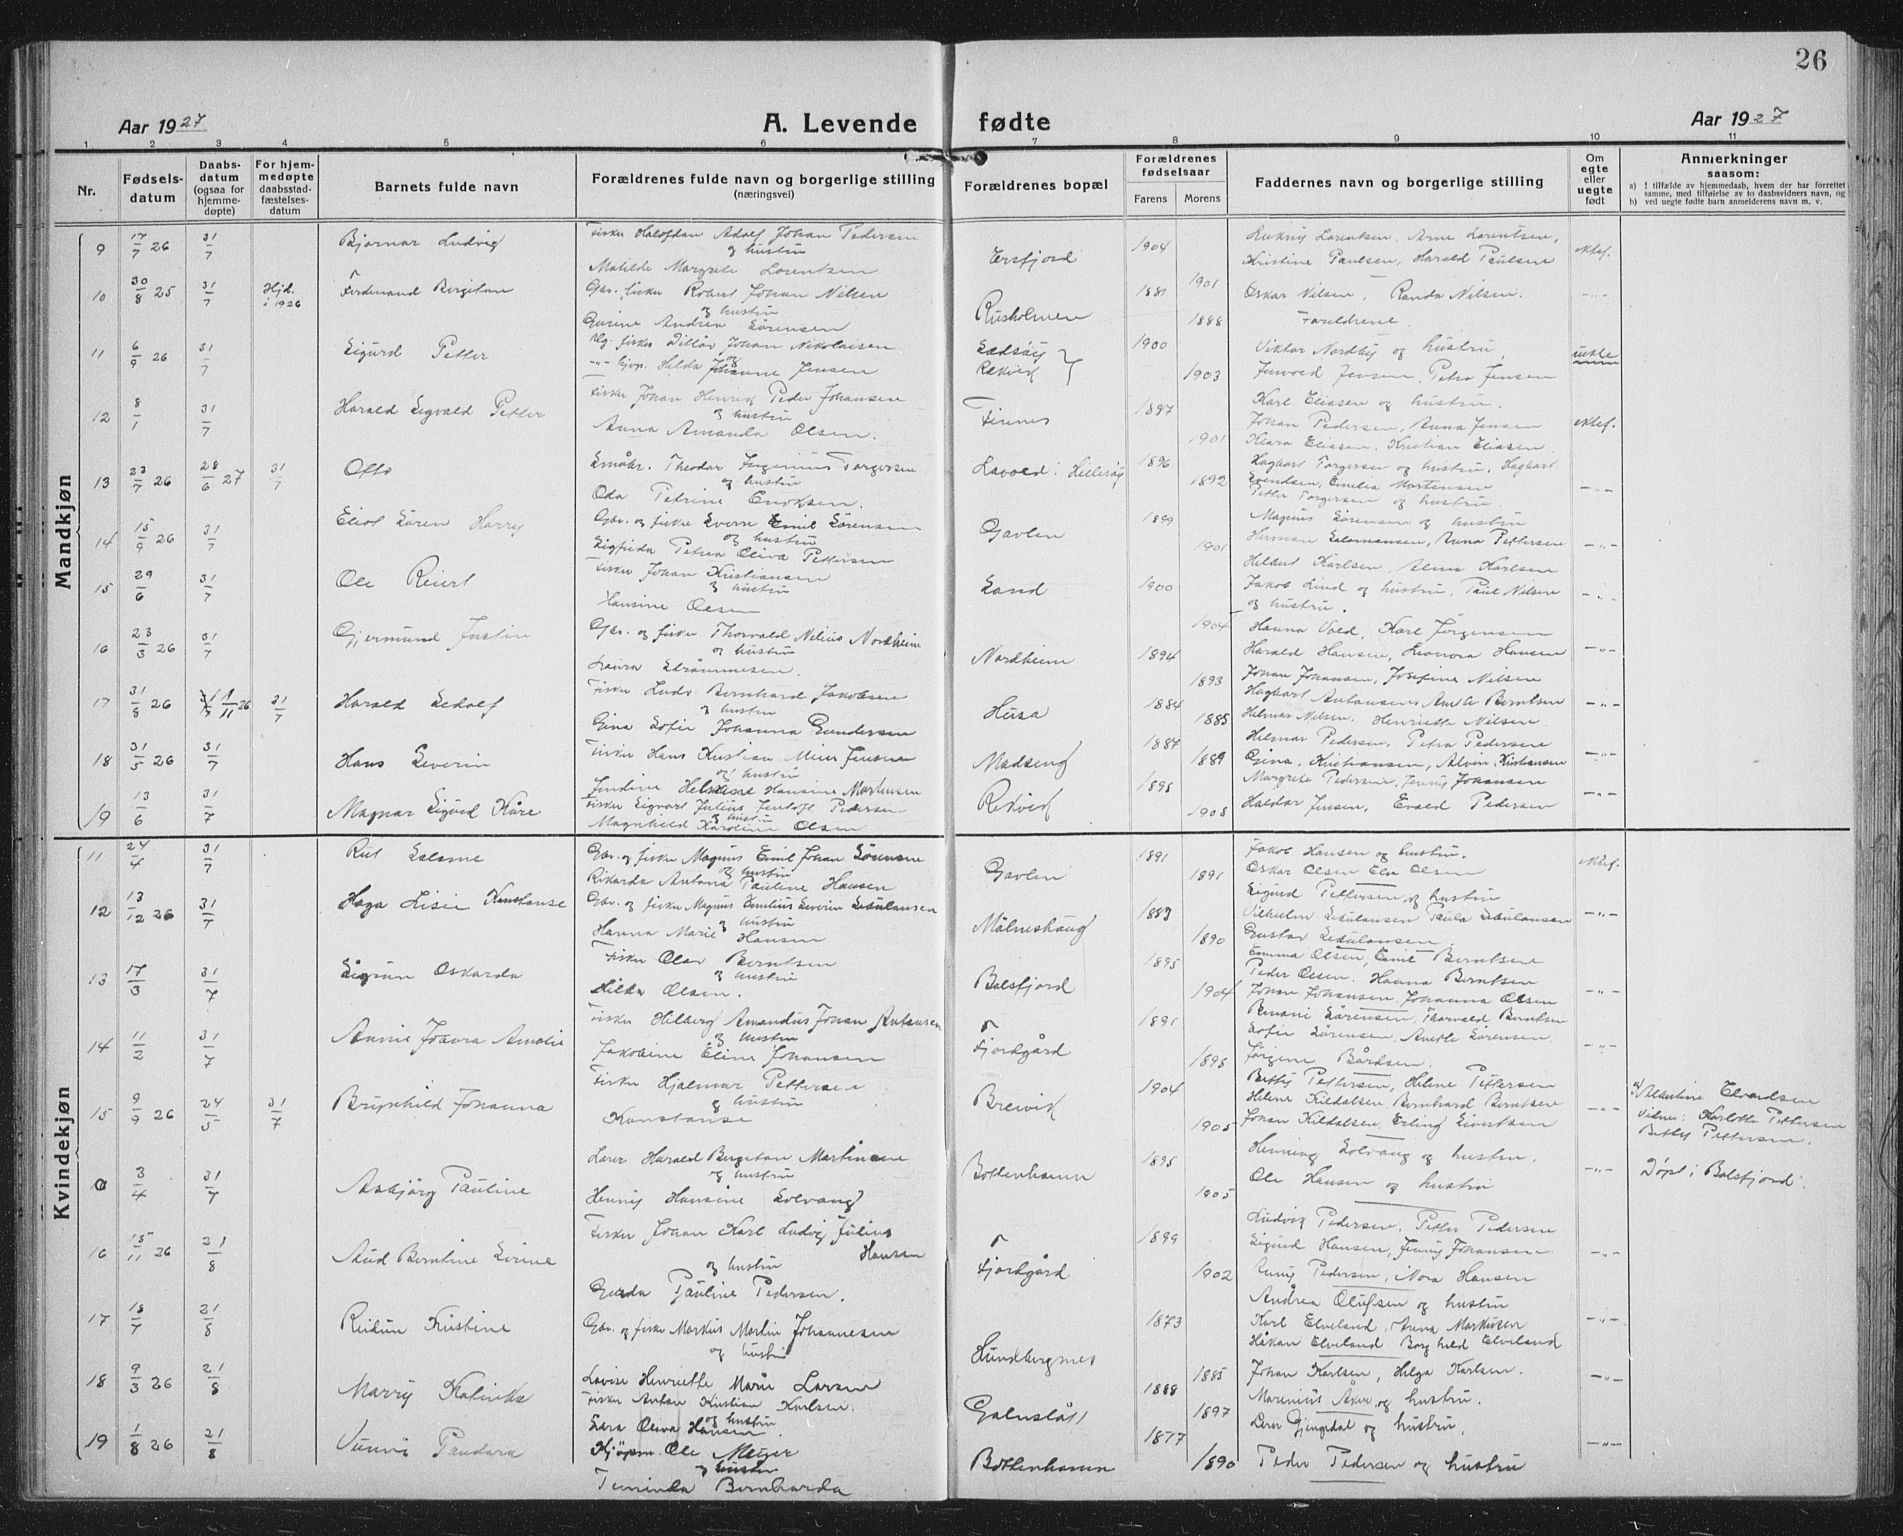 26
Aar 1927 A. Levende fødte Aar 1927
1 2 3 4 5 6 7 8 9 10 11
Nr. Fødsels-datum Daabs-datum (ogsaa for hjemme-døpte) For hjem-medøpte daabsstad-fæstelses-datum Barnets fulde navn Forældrenes fulde navn og borgerlige stilling (næringsvei) Forældrenes bopæl Forældrenes fødselsaar Farens Morens Faddernes navn og borgerlige stilling Om egte eller uegte født Anmerkninger saasom:
a) I tilfælde av hjemmedaab, hvem der har forrettet samme, med tilføielse av to daabsvidners navn, og
b) ved uegte fødte barn anmelderens navn m. v.
Mandkjøn
9 17/7 26 31/7 Bjarnar Ludvig Fisker Halofdan Adolf Johan Pedersen og hustru Matilde Margrete Lorentsen Ersfjord 1904 1901 Lorentsen, Arne Lorentsen, Kristine Paulsen, Harald Paulsen ektef.
10 30/8 25 31/7 Hjd. i 1926 Ferdinand Bergitan Gbr. fisker Robert Johan Nilsen og hustru Gurine Andrea Sørensen Rusholmen 1881 1888 Oskar Nilsen, Randa Nilsen. Foreldrene. -"-
11 6/9 26 31/7 Sigurd Petter Ug. fisker Ditlev Johan Nikolaisen og -"- Hilda Johanne Jensen 1900 1903 Viktor Nordby og hustru, Jensen, Petra Jensen uekte
12 8/1 31/7 Harald Sigvald Petter Fisker Johan Henrik Peder Johansen og hustru Anna Amanda Olsen. Finnes 1897 1901 Karl Eliasen og hustru, Johan Pedersen, Anna Jensen Klara Eliasen, Kristian Eliasen ektef.
13 23/7 26 28/6 27 31/7 Otto Småbr. Theodor Torgersen og hustru Oda Petrine Enoksen. Lavold i Hillesøy 1896 1892 Hagbart Torgersen og hustru, Hagbart Svendsen, Emelie Mortensen Petter Torgersen og hustru -"-
14 15/9 26 31/7 Eliot Søren Harry Gbr. og fisker Sverre Emil Sørensen og hustru Sigfrida Petrea Oliva Pettersen Gavlen 1899 1901 Magnus Sørensen og hustru Herman Salamonsen, Anna Pettersen -"-
15 29/6 31/7 Ole Reiert Fisker Johan Kristiansen og hustru Hansine Olsen Sand 1900 1904 Hildert Karlsen, Alma Karlsen Jakob Lind og hustru, Paul Nilsen og hustru. -"-
16 23/3 26 31/7 Gjermund Justin Gbr. og fisker Thorvald Nilius Nordheim og hustru Laura Strømmesen Nordheim 1894 1893 Hanna Vold, Karl Jørgensen Harald Hansen, Leonora Hansen Johan Johansen, Josefine Nilsen -"-
17 31/8 26 1/11 26 31/7 Harald Sedolf Fisker Ludv Bernhard Jakobsen og hustru Gina Sofie Johanna Gundersen Husa 1884 1885 Hagbart Antonsen Berntsen Helmar Nilsen, Henriette Nilsen -"-
18 31/5 26 31/7 Hans Severin Fisker Hans Kristian Meier Jensen og hustru Hansine Martensen Madseng 1887 1889 Helmar Pedersen, Petra Pedersen Gina Kristiansen, Alvin Kristiansen -"-
19 13/6 31/7 Magnar Sigurd Kåre Fisker Sigvart Julius Pedersen og hustru Magnhild Karoline Olsen Redvik 1895 1905 Margrete Pedersen, Jenny Johansen Haldor Jensen, Evald Pedersen -"-
Kvindekjøn
11 24/4 31/7 Rut Salome Gbr. og fisker Magnus Emil Johan Sørensen og hustru Rikarda Antona Pauline Hansen Gavlen 1891 1891 Jakob Hansen og hustru. Oskar Olsen Ela Olsen ektef.
12 13/12 26 31/7 Haga Lisei Konstanse Gbr. og fisker Magnus Emilius Severin og hustru Hanna Marie Hansen Målneshaug 1889 1890 Sigurd Pettersen og hustru Vilhelm Paula Gustav -"-
13 17/3 31/7 Sigrun Oskarda Fisker Olav Berntsen og hustru Hilda Olsen. Balsfjord 1895 1904 Emma Olsen, Emil Berntsen Peder Olsen, Hanna Berntsen Johan Johansen, Johanna Olsen -"-
14 11/2 31/7 Annie Amalie Fisker Hilberg Amandus Johan Antonsen og hustru Jakobine Eline Johansen Fjordgård 1891 1895 Sørensen, Thorvald Berntsen Sofie Sørensen, Anette Sørensen. Jørgine Bårdsen -"-
15 9/9 26 24/5 31/7 Brynhild Johanna Fisker Hjalmar Pettersen og hustru Konstanse Breivik 1904 1905 Betty Pettersen, Helene Pettersen Helene Kildalsen, Bernhard Berntsen Johan Kildalsen, Erling Sivertsen -"- a) Valentine Elvardsen Vidner: Karlotte Pettersen Betty Pettersen.
0 3/4 31/7 Asbjørg Pauline Lærer Harald Bergitan Martinsen og hustru Henny Hansine Solvang Bottenhamn 1895 1905 Henning Solvang og hustru. Ole Hansen og hustru -"- Døpt i Balsfjord.
16 15/11 26 21/8 Aud Berntine Fisker Johan Karl Ludvig Julius Hansen og hustru Pauline Pedersen. Fjordgård 1899 1902 Ludvik Pedersen, Petter Pedersen Sigurd Hansen, Jenny Johansen Jenny Pedersen, Nora Hansen -"-
17 15/7 21/8 Reidun Kristine Gbr. og fisker Markus Martin Johannesen og hustru Lovise Henriette Marie Larsen Hundbergnes 1873 1885 Andrea Olufsen og hustru Karl Elveland, Anna Markusen Håkan Elveland Borghild Elveland -"-
18 9/3 26 21/8 Marry Katinka Fisker Anton Kristian Karlsen. og hustru Sara Oliva Hansen Galnslått 1888 1897 Johan Karlsen, Helga Karlsen. Marenius Aker og hustru. -"-
19 1/8 26 21/8 Kjøpm. Ole Meyer og hustru Bernharda Bottenhamn 1877 1890 Lærer Gjengedal og hustru, Peder Pedersen og hustru -"-